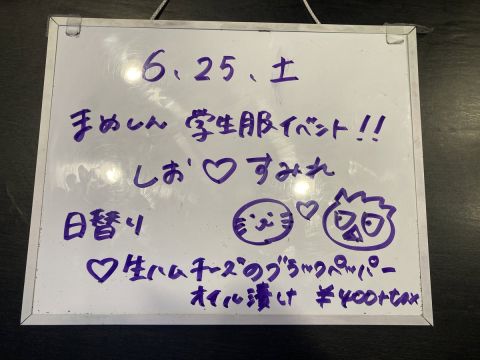 6.25.土
まめしん 学生服イベント!!
しお♡すみれ
日替り
♡生ハムチーズのブラックペッパー
オイル漬け ¥400+tax